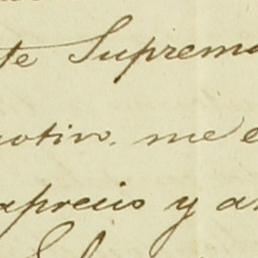 te Suprema
motivo, me e
aprecio y a